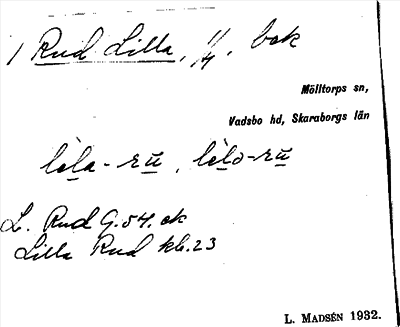 1 Rud Lilla, 1/4, bek
Mölltorps sn,
Vadsbo hd, Skaraborgs län
lìla - rū, lìlo-rū
L. Rud G.54. ek
Lilla Rud kb.23
L. MADSÉN 1932.